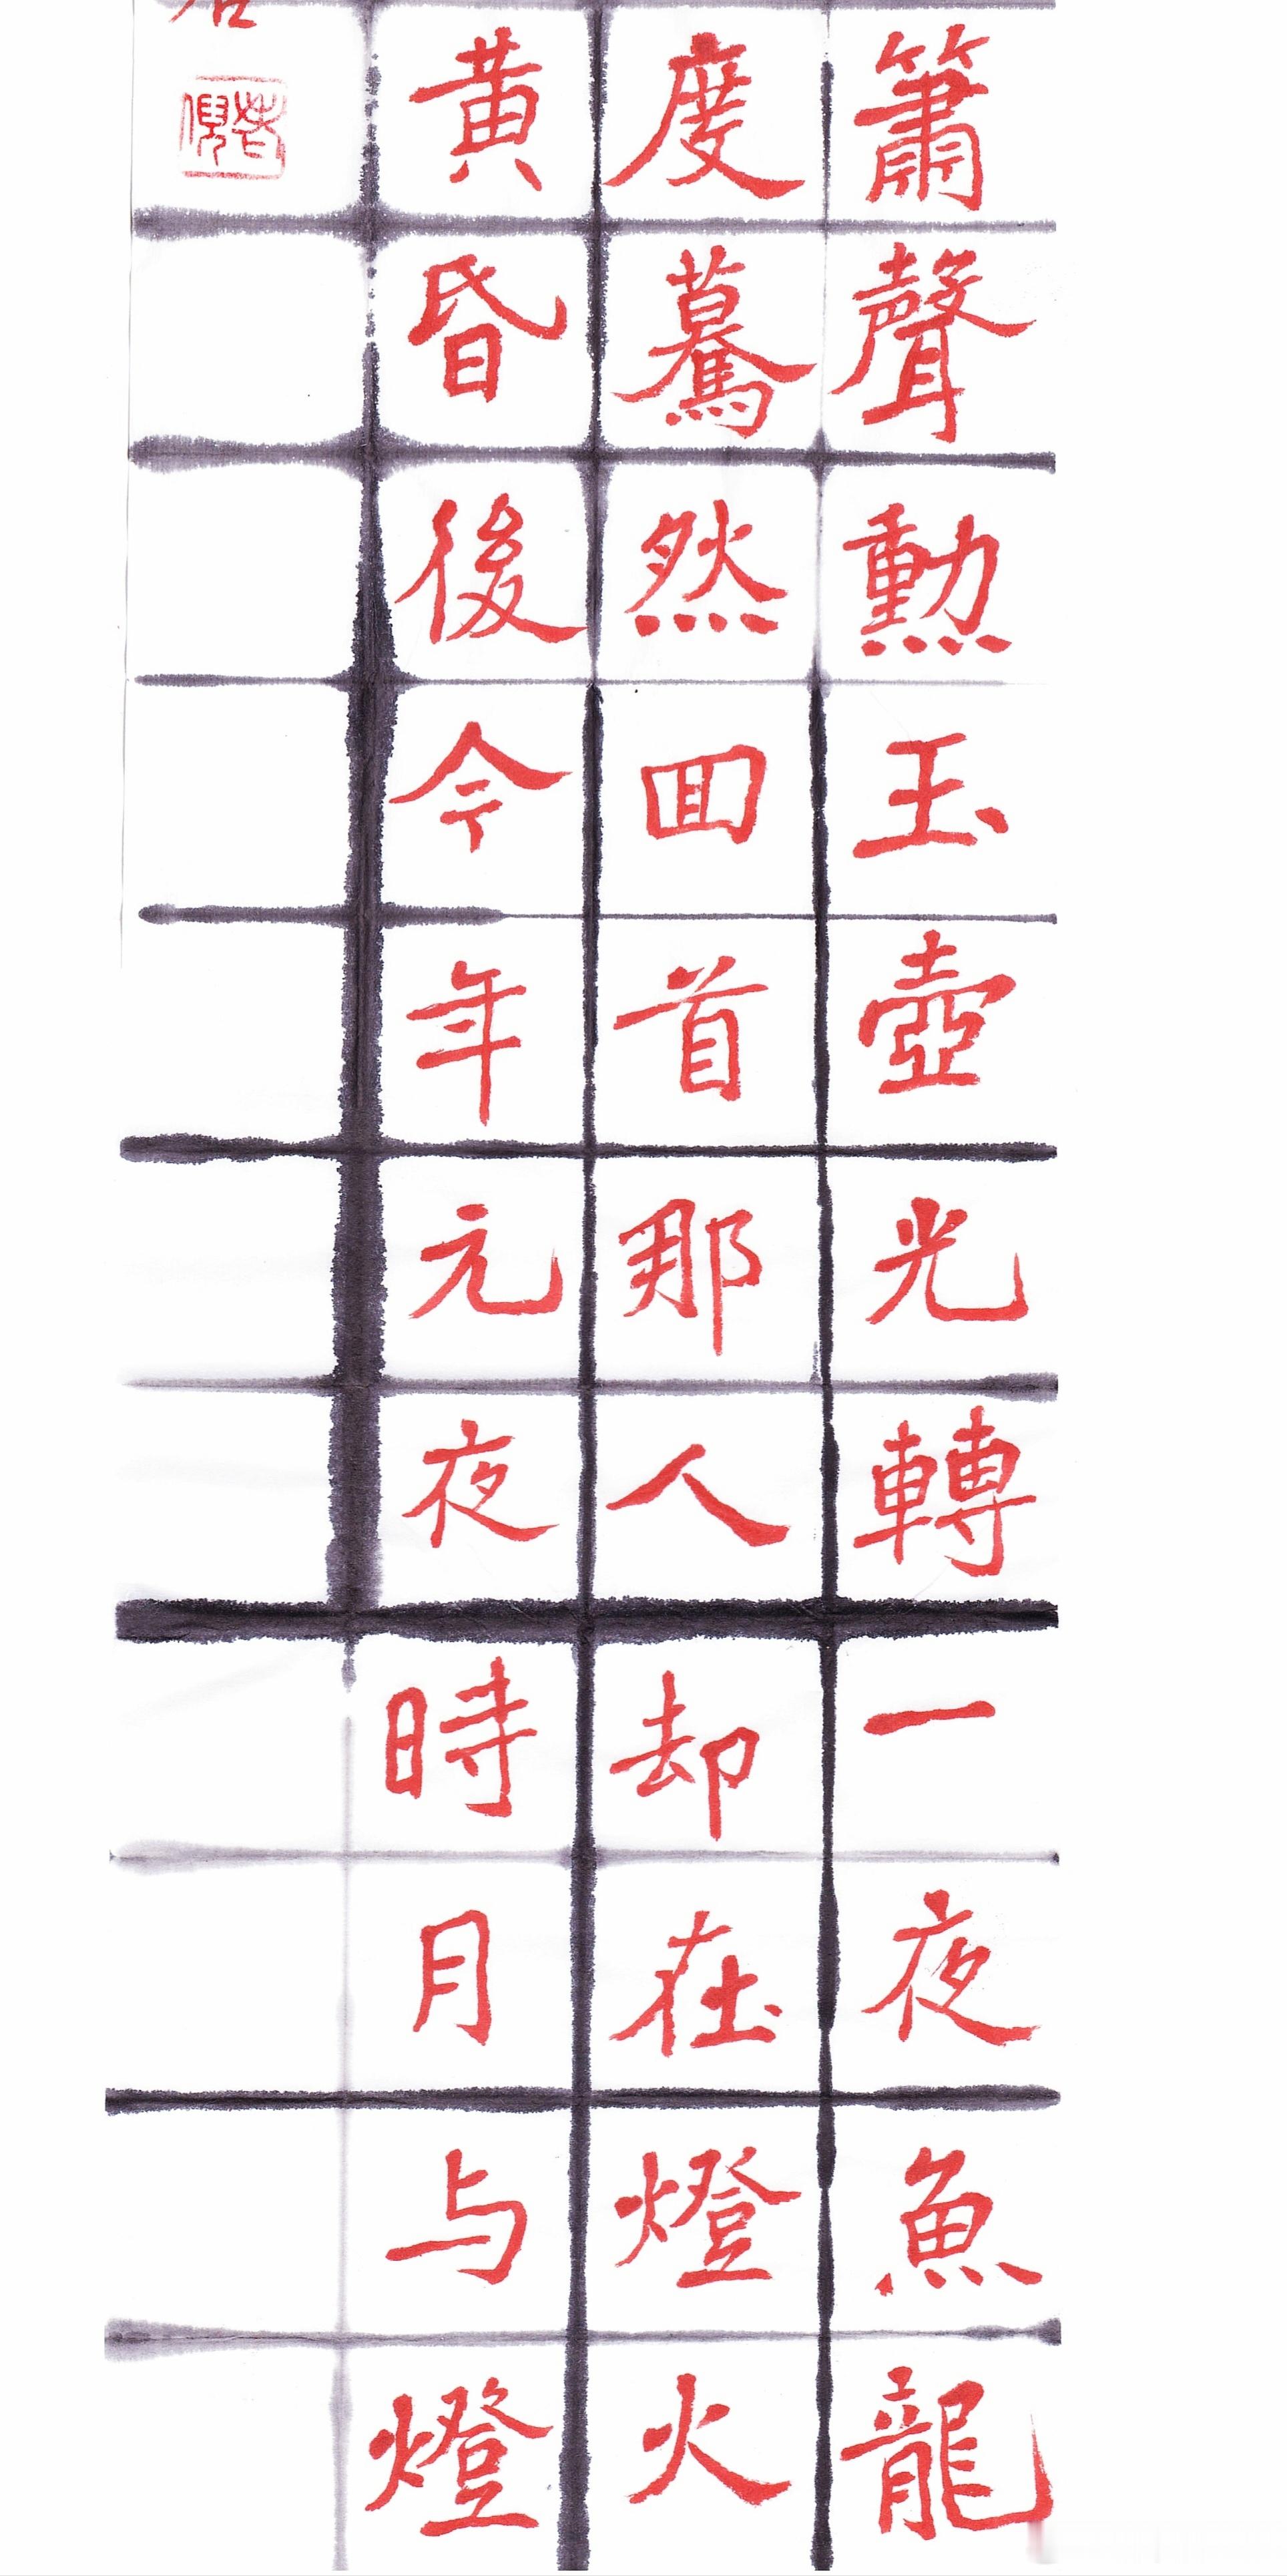 簫聲動玉壺光轉一夜魚龍
度驀然回首那人却在燈火
黃昏後今年元夜時月与燈